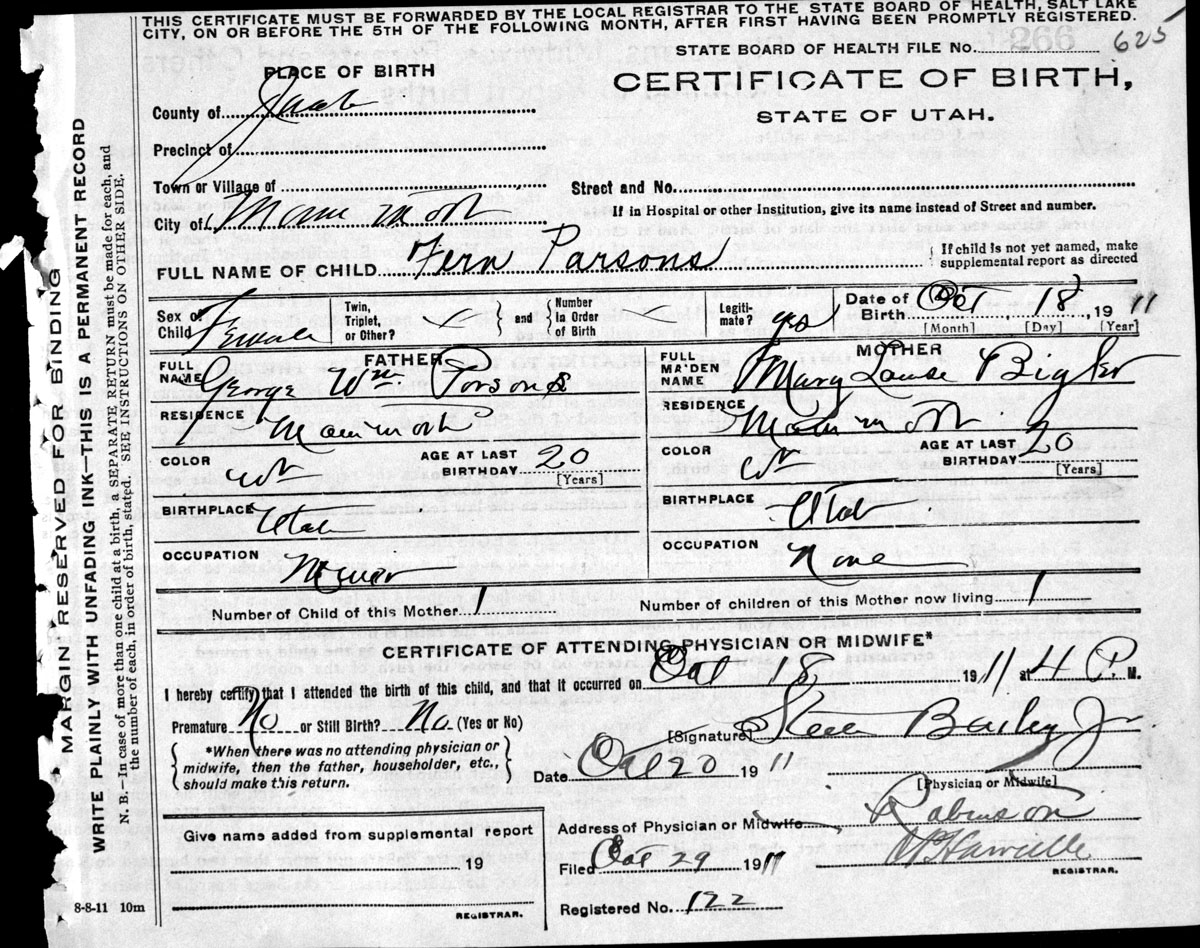 THIS CERTIFICATE MUST BE FORWARDED BY THE LOCAL REGISTRAR TO THE STATE BOARD OF HEALTH, SALT LAKE
CITY, ON OR BEFORE THE 5TH OF THE FOLLOWING MONTH, AFTER FIRST HAVING BEEN PROMPTLY REGISTERED.
STATE BOARD OF HEALTH FILE No. 266 625
PLACE OF BIRTH
CERTIFICATE OF BIRTH,
STATE OF UTAH.
County of Juab
Precinct of
Town or Village of
Street and No.
City of Mammoth
If in Hospital or other Institution, give its name instead of Street and number.
FULL NAME OF CHILD Fern Parsons { If child is not yet named, make supplemental report as directed
Sex of Child Female Twin, Triplet, or Other? } and { Number in Order of Birth Legiti-mate? yes Date of Birth Oct 18, 1911
[Month] [Day] [Year]
FATHER MOTHER
FULL NAME George Wm Parsons FULL MAIDEN NAME Mary Louise Bigler
RESIDENCE Mammoth RESIDENCE Mammoth
COLOR W AGE AT LAST BIRTHDAY 20 [Years] COLOR W AGE AT LAST BIRTHDAY 20 [Years]
BIRTHPLACE Utah BIRTHPLACE Utah
OCCUPATION OCCUPATION None
Number of Child of this Mother 1 Number of children of this Mother now living 1
CERTIFICATE OF ATTENDING PHYSICIAN OR MIDWIFE*
I hereby certify that I attended the birth of this child, and that it occurred on Oct 18 1911 at 4 P. M.
Premature No or Still Birth? No (Yes or No)
[Signature] Steele Bailey Jr
{ *When there was no attending physician or
midwife, then the father, householder, etc.,
should make this return. }
Date Oct 20 1911
[Physician or Midwife]
Give name added from supplemental report
19
REGISTRAR.
Address of Physician or Midwife Robinson
Filed Oct 29 1911
REGISTRAR.
Registered No. 122
8-8-11 10m
MARGIN RESERVED FOR BINDING
WRITE PLAINLY WITH UNFADING INK—THIS IS A PERMANENT RECORD
N. B.—In case of more than one child at a birth, a SEPARATE RETURN must be made for each, and
the number of each, in order of birth, stated. SEE INSTRUCTIONS ON OTHER SIDE.